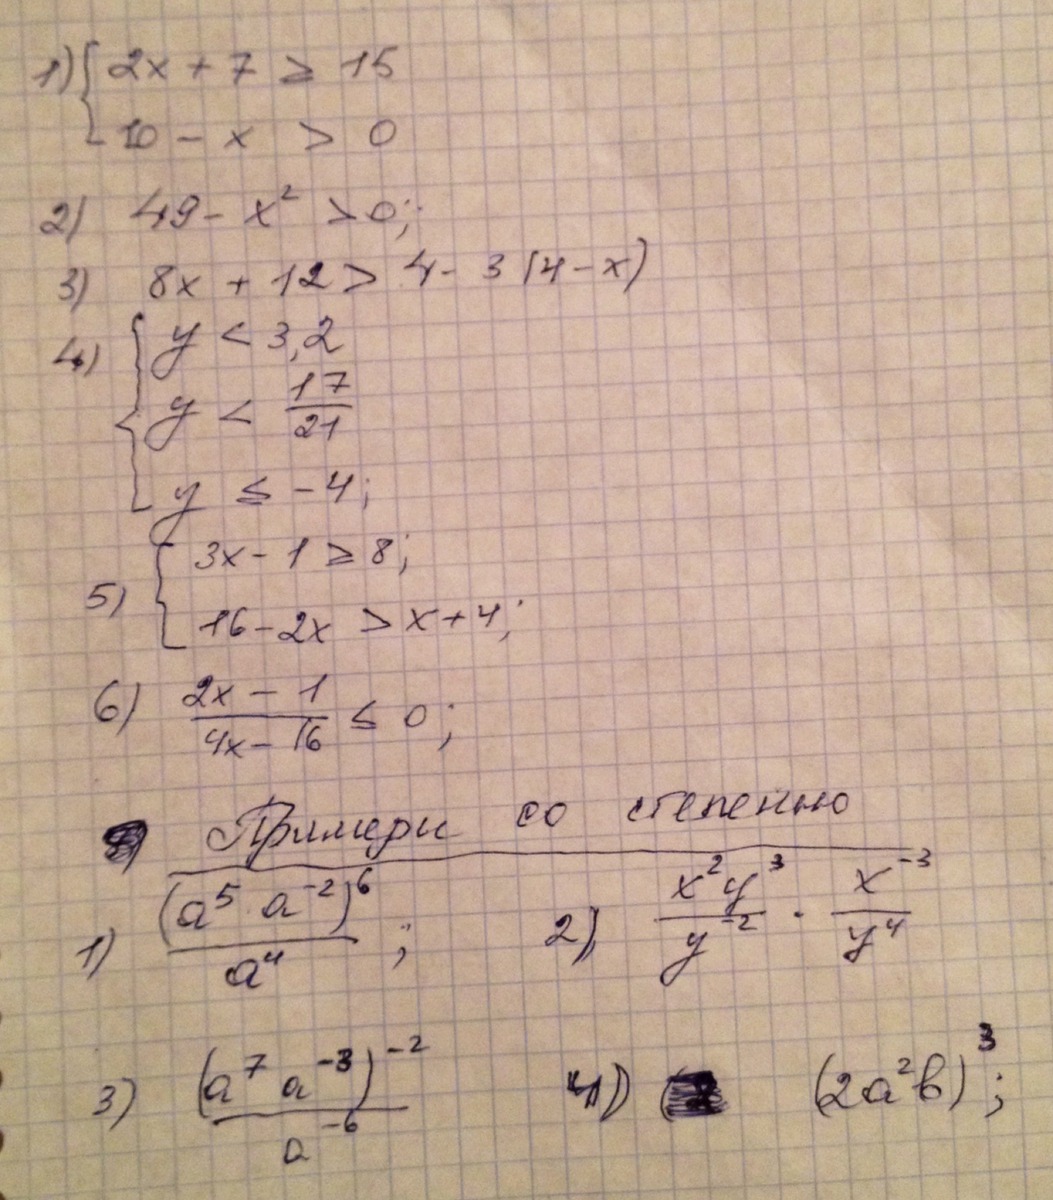 1) { 2x + 7 ≥ 15
10 - x > 0
2) 49 - x² > 0;
3) 8x + 12 > 4 - 3(4 - x)
4) { y < 3,2
y < 17/21
y ≤ -4;
5) { 3x - 1 ≥ 8;
16 - 2x > x + 4;
6) (2x - 1)/(4x - 16) ≤ 0;
Примеры со степенью
1) (a⁵ a⁻²)⁶/a⁴ ; 2) x²y³/y⁻² · x⁻³/y⁴
3) (a⁷ a⁻³)⁻²/a⁻⁶ 4) (2a²b)³;